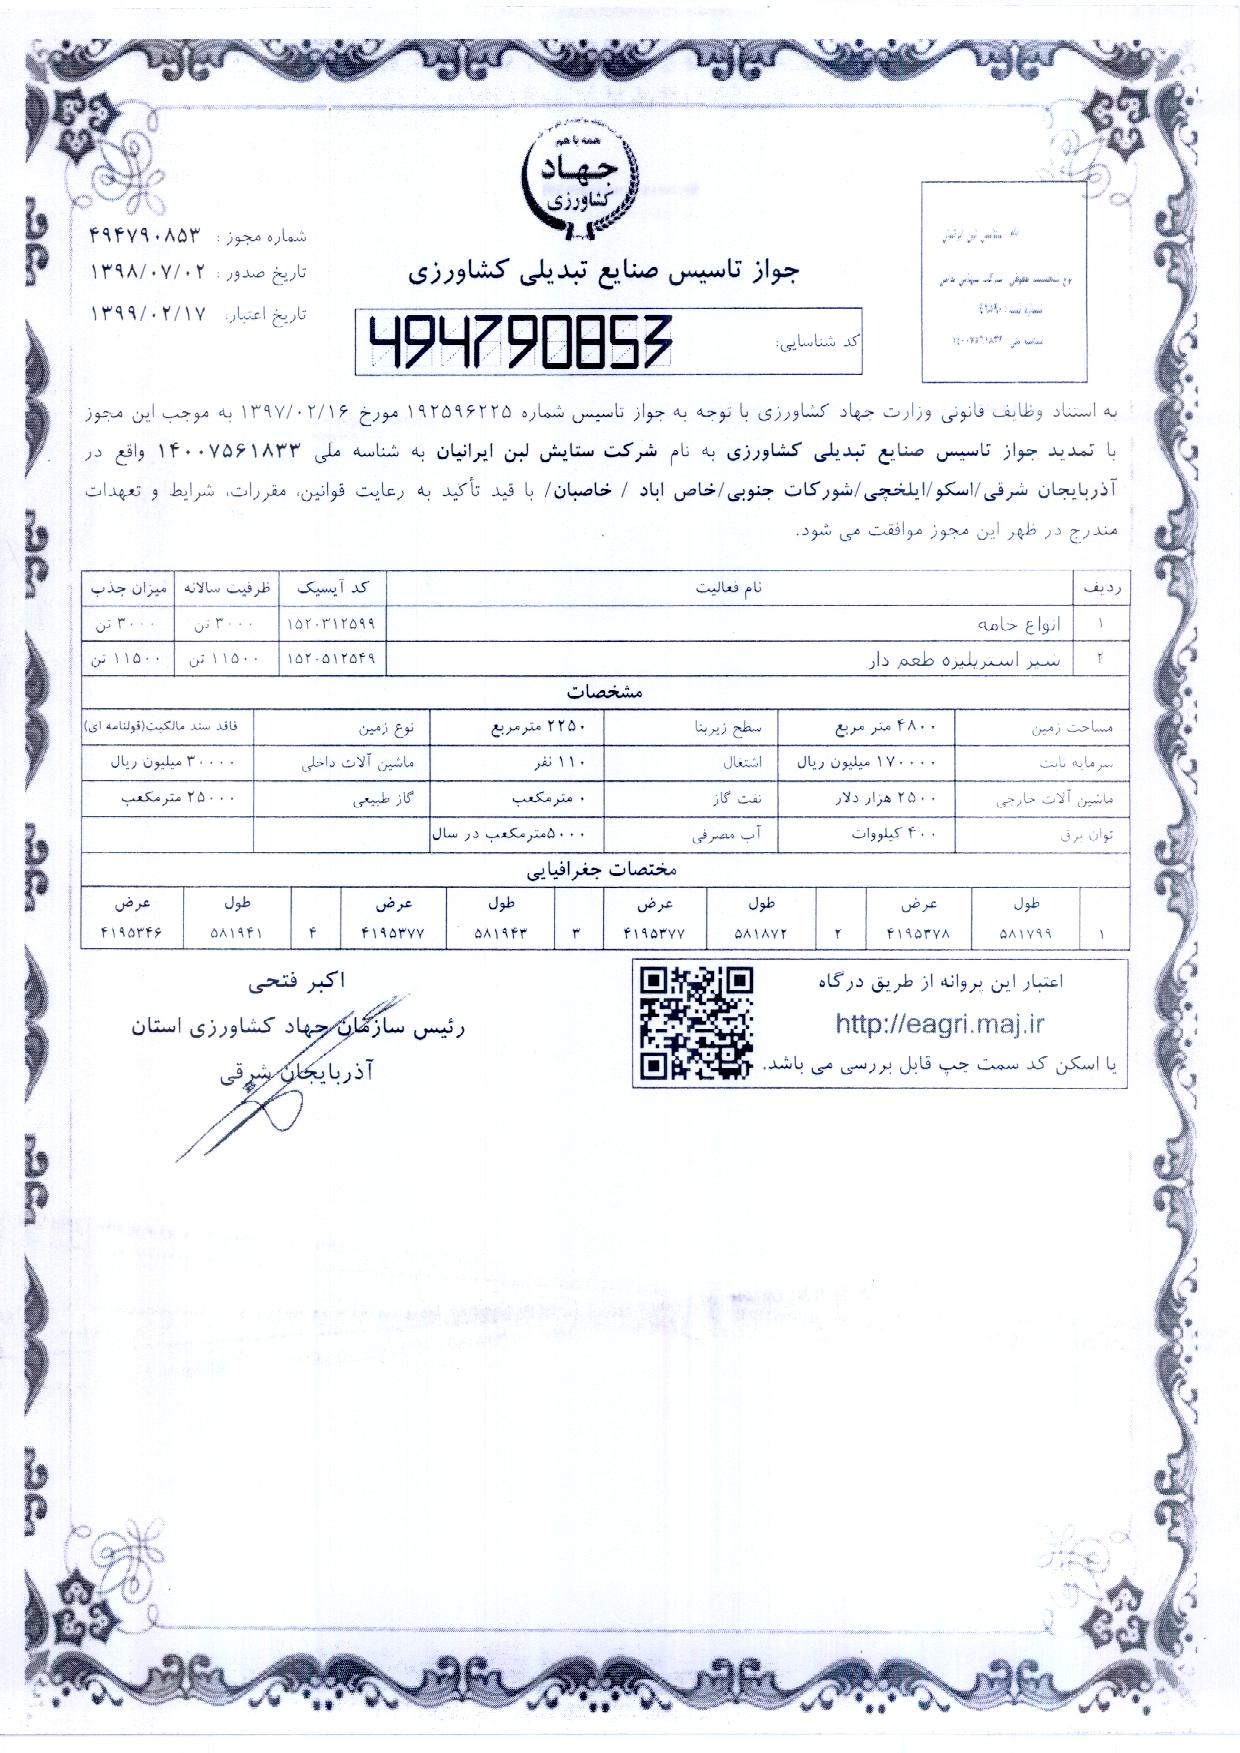 همه با هم
جهاد
کشاورزی
شماره مجوز : ۴۹۴۷۹۰۸۵۳
تاریخ صدور : ۱۳۹۸/۰۷/۰۲
تاریخ اعتبار: ۱۳۹۹/۰۲/۱۷
جواز تاسیس صنایع تبدیلی کشاورزی
کد شناسایی: 494790853
به استناد وظایف قانونی وزارت جهاد کشاورزی با توجه به جواز تاسیس شماره ۱۹۲۵۹۶۲۲۵ مورخ ۱۳۹۷/۰۲/۱۶ به موجب این مجوز
با تمدید جواز تاسیس صنایع تبدیلی کشاورزی به نام شرکت ستایش لبن ایرانیان به شناسه ملی ۱۴۰۰۷۵۶۱۸۳۳ واقع در
آذربایجان شرقی/اسکو/ایلخچی/شورکات جنوبی/خاص اباد / خاصبان/ با قید تأکید به رعایت قوانین، مقررات، شرایط و تعهدات
مندرج در ظهر این مجوز موافقت می شود.
ردیف نام فعالیت کد آیسیک ظرفیت سالانه میزان جذب
۱ انواع خامه ۱۵۲۰۳۱۲۵۹۹ ۳۰۰۰ تن ۳۰۰۰ تن
۲ شیر استریلیزه طعم دار ۱۵۲۰۵۱۲۵۴۹ ۱۱۵۰۰ تن ۱۱۵۰۰ تن
مشخصات
مساحت زمین ۴۸۰۰ متر مربع سطح زیربنا ۲۲۵۰ مترمربع نوع زمین فاقد سند مالکیت(قولنامه ای)
سرمایه ثابت ۱۷۰۰۰۰ میلیون ریال اشتغال ۱۱۰ نفر ماشین آلات داخلی ۳۰۰۰۰ میلیون ریال
ماشین آلات خارجی ۲۵۰۰ هزار دلار نفت گاز ۰ مترمکعب گاز طبیعی ۲۵۰۰۰ مترمکعب
توان برق ۴۰۰ کیلووات آب مصرفی ۵۰۰۰مترمکعب در سال
مختصات جغرافیایی
طول عرض طول عرض طول عرض طول عرض
۱ ۵۸۱۷۹۹ ۴۱۹۵۳۷۸ ۲ ۵۸۱۸۷۲ ۴۱۹۵۳۷۷ ۳ ۵۸۱۹۴۳ ۴۱۹۵۳۷۷ ۴ ۵۸۱۹۴۱ ۴۱۹۵۳۴۶
اعتبار این پروانه از طریق درگاه
http://eagri.maj.ir
یا اسکن کد سمت چپ قابل بررسی می باشد.
اکبر فتحی
رئیس سازمان جهاد کشاورزی استان
آذربایجان شرقی